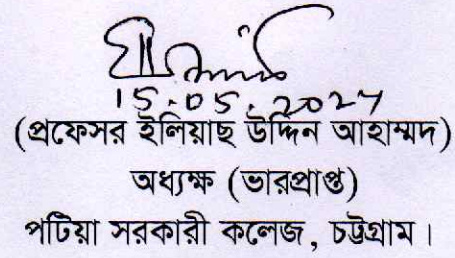 15.05.2024
(প্রফেসর ইলিয়াছ উদ্দিন আহাম্মদ)
অধ্যক্ষ (ভারপ্রাপ্ত)
পটিয়া সরকারী কলেজ, চট্টগ্রাম।